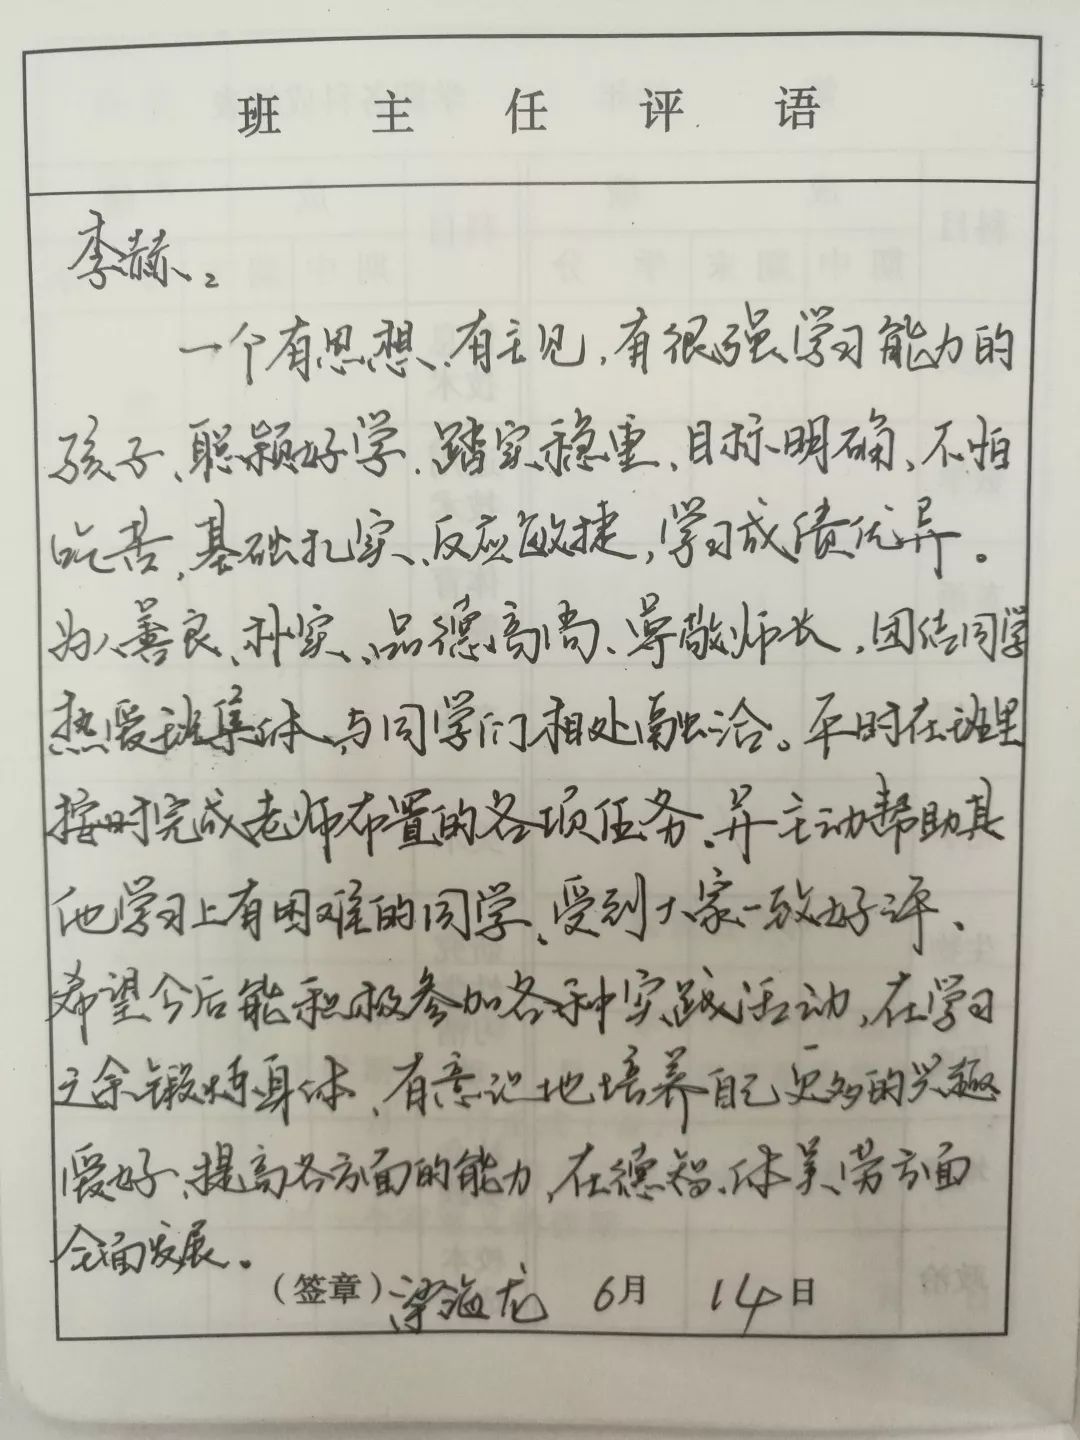 班主任评语
李赫:
一个有思想、有主见,有很强学习能力的
孩子、聪颖好学、踏实稳重、目标明确、不怕
吃苦,基础扎实、反应敏捷,学习成绩优异。
为人善良、朴实、品德高尚、尊敬师长,团结同学
热爱班集体、与同学们相处融洽。平时在班里
按时完成老师布置的各项任务、并主动帮助其
他学习上有困难的同学、受到大家一致好评、
希望今后能积极参加各种实践活动,在学习
之余锻炼身体、有意识地培养自己更多的兴趣
爱好、提高各方面的能力,在德智、体美、劳方面
全面发展。
(签章)梁海龙 6月 14日